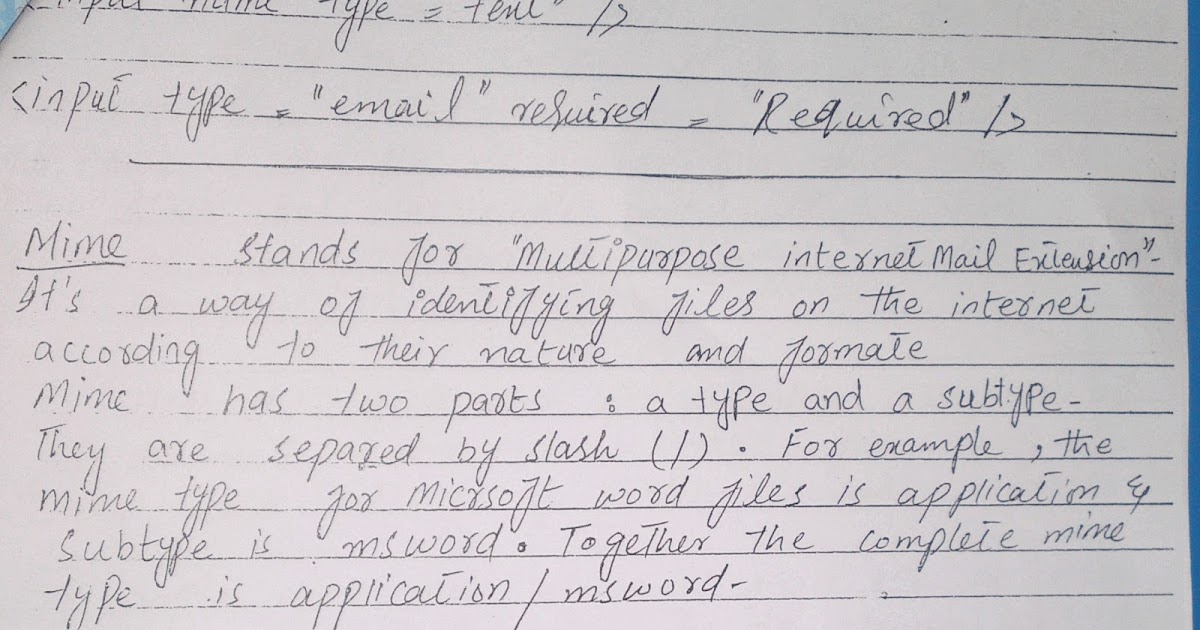 <input name type = text" />
<input type = "email" required = "Required" />
Mime stands for "Multipurpose internet Mail Extension"-
It's a way of identifying files on the internet
according to their nature and formate
Mime has two parts : a type and a subtype-
They are separed by slash (/). For example, the
mime type for micrsoft word files is application &
subtype is msword. Together the complete mime
type is application/msword-